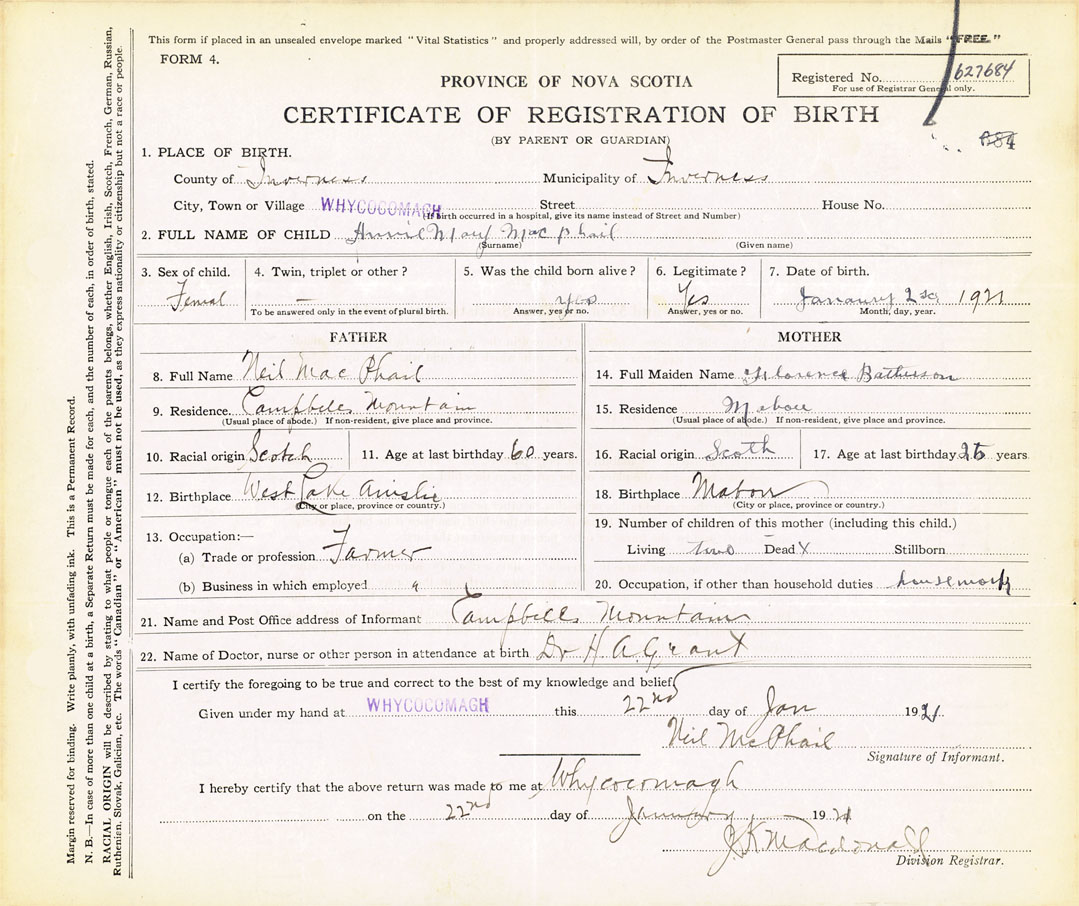 This form if placed in an unsealed envelope marked "Vital Statistics" and properly addressed will, by order of the Postmaster General pass through the Mails "FREE."
FORM 4.
PROVINCE OF NOVA SCOTIA
Registered No. 627684
For use of Registrar General only.
CERTIFICATE OF REGISTRATION OF BIRTH
(BY PARENT OR GUARDIAN)
1. PLACE OF BIRTH.
County of Inverness Municipality of Inverness
City, Town or Village WHYCOCOMAGH Street House No.
(If birth occurred in a hospital, give its name instead of Street and Number)
2. FULL NAME OF CHILD Annie Mary Mac phail
(Surname) (Given name)
3. Sex of child. 4. Twin, triplet or other? 5. Was the child born alive? 6. Legitimate? 7. Date of birth.
Femal — yes Yes January 1921
To be answered only in the event of plural birth. Answer, yes or no. Answer, yes or no. Month, day, year.
FATHER
8. Full Name Neil Mac Phail
9. Residence Campbells Mountain
(Usual place of abode.) If non-resident, give place and province.
10. Racial origin Scotch 11. Age at last birthday 60 years.
12. Birthplace West Lake Ainslie
(City or place, province or country.)
13. Occupation:—
(a) Trade or profession Farmer
(b) Business in which employed
MOTHER
14. Full Maiden Name Florence Batterson
15. Residence Mabou
(Usual place of abode.) If non-resident, give place and province.
16. Racial origin Scoth 17. Age at last birthday 26 years
18. Birthplace Mabou
(City or place, province or country.)
19. Number of children of this mother (including this child.)
Living two Dead X Stillborn
20. Occupation, if other than household duties housework
21. Name and Post Office address of Informant Campbells Mountain
22. Name of Doctor, nurse or other person in attendance at birth Dr H A. Grant
I certify the foregoing to be true and correct to the best of my knowledge and belief.
Given under my hand at WHYCOCOMAGH this 22nd day of Jan 1921.
Neil McPhail
Signature of Informant.
I hereby certify that the above return was made to me at Whycocomagh
on the 22nd day of January 1921
J. K. Macdonald
Division Registrar.
Margin reserved for binding. Write plainly, with unfading ink. This is a Permanent Record.
N. B.—In case of more than one child at a birth, a Separate Return must be made for each, and the number of each, in order of birth, stated.
RACIAL ORIGIN will be described by stating to what people or tongue each of the parents belongs, whether English, Irish, Scotch, French, German, Russian,
Ruthenien, Slovak, Galician, etc. The words "Canadian" or "American" must not be used, as they express nationality or citizenship but not a race or people.